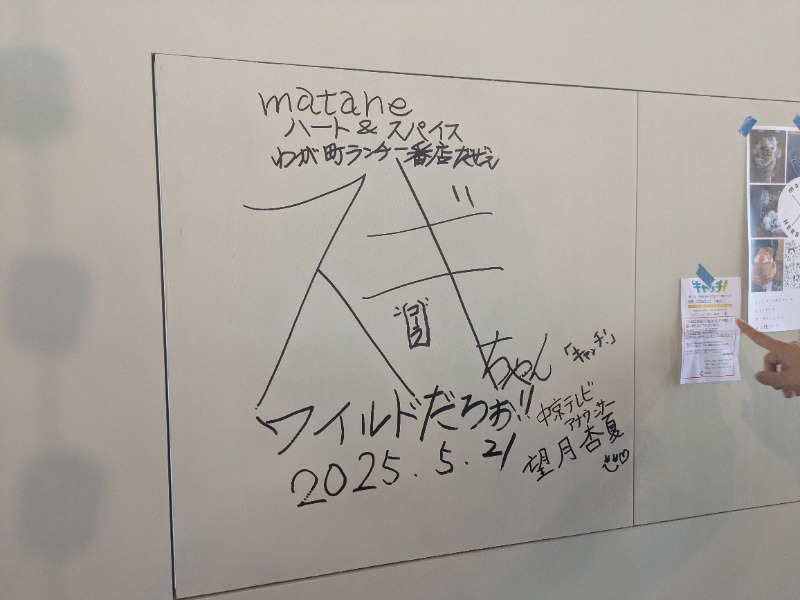 matane
ハート & スパイス
わが町ランチ一番店だぜぇ
スギ
コーラ
ちゃん
「キャッチ!」
ワイルドだろぉ!!
中京テレビ
アナウンサー
望月杏夏
2025.5.21
キャッチ!